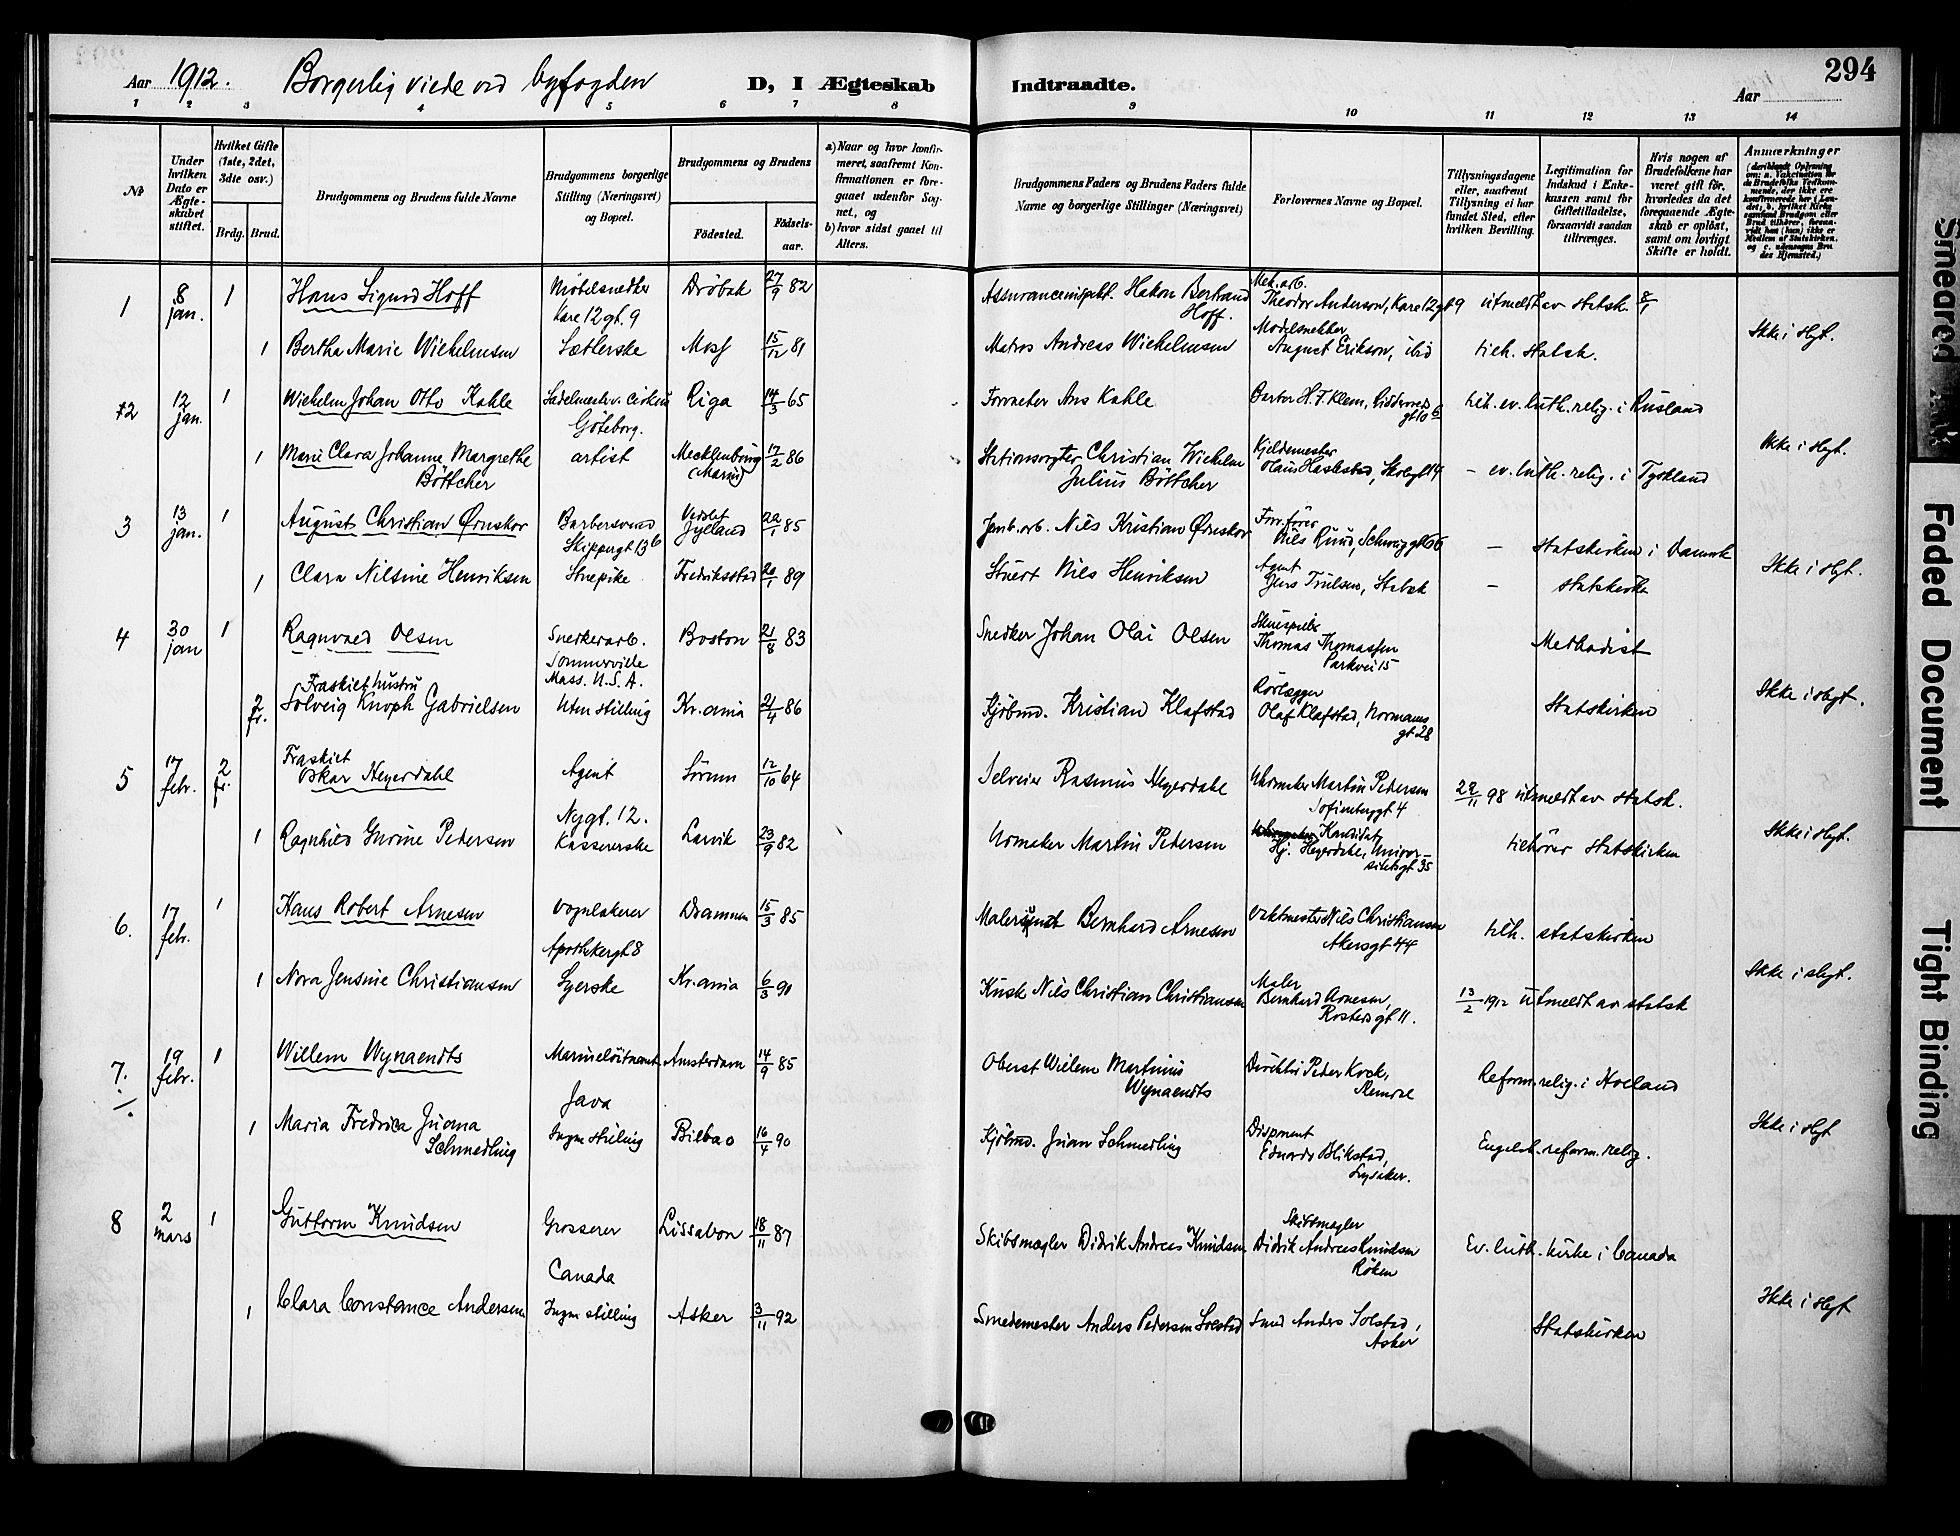 294
Aar 1912. Borgerlig viede ved byfogden D, I Ægteskab Indtraadte. Aar
1 2 3 4 5 6 7 8 9 10 11 12 13 14
No
Under hvilken Dato er Ægteskabet stiftet.
Hvilket Gifte (1ste, 2det, 3die osv.)
Brdg. Brud.
Brudgommens og Brudens fulde Navne
Brudgommens borgerlige Stilling (Næringsvei) og Bopæl.
Brudgommens og Brudens
Fødested. Fødselsaar.
a) Naar og hvor konfirmeret, saafremt Konfirmationen er foregaaet udenfor Sognet, og
b) hvor sidst gaaet til Alters.
Brudgommens Faders og Brudens Faders fulde Navne og borgerlige Stillinger (Næringsvei)
Forlovernes Navne og Bopæl.
Tillysningsdagene eller, saafremt Tillysning ei har fundet Sted, efter hvilken Bevilling.
Legitimation for Indskud i Enkekassen samt for Giftetilladelse, forsaavidt saadan tiltrænges.
Hvis nogen af Brudefolkene har været gift før, hvorledes da det foregaaende Ægteskab er opløst, samt om lovligt Skifte er holdt.
Anmærkninger
1 8 jan. 1 Hans Sigurd Hoff Møbelsnedker Kare 12 gt. 9 Drøbak 27/9 82 Assuranceinspekt. Hakon Bertrand Hoff. Mek. arb. Theodor Anderson, Kare 12 gt 9 utmeldt av statsk. 8/1
1 Bertha Marie Wilhelmsen Moss 15/12 81 Matros Andreas Wilhelmsen Modelsnekker August Erikson, ibid tilh. statsk. Ikke i slgt.
2 12 jan. 1 Wilhelm Johan Otto Kahle Göteborg. Riga 14/3 65 Kahle tilh. ev. luth. relig. i Rusland
1 Marie Clara Johanne Margrethe Böttcher artist Mecklenburg 17/2 86 Christian Wilhelm Julius Böttcher - ev. luth. relig. i Tyskland Ikke i slgt.
3 13 jan. 1 August Christian Ørnskov Barbersvend Skippergt 13 b Jylland 22/1 85 Jernb. arb. Nils Kristian Ørnskov Nils Ruud, - statskirken i Danmk
1 Clara Nilsine Henriksen Stuepike Fredriksstad 20/1 89 Stuert Nils Henriksen Agent Jens Trulsen, Stabæk - statskirke Ikke i slgt.
4 30 jan 1 Ragnvald Olsen Snekkerarb. Sommerville Mass. U.S.A. Boston 21/8 83 Snedker Johan Olai Olsen Skuespiller Thomas Thomassen Parkvei 15 Methodist
2 fr. Fraskilt hustru Solveig Knoph Gabrielsen Uten stilling Kr.ania 21/4 86 Kjøbmd. Kristian Klafstad Rørlægger Olaf Klafstad, Normans gt 28 Statskirken Ikke i slegt.
5 17 febr. 2 fr. Fraskilt Oskar Heyerdahl Agent Nygt. 12. Sørum 12/10 64 Selveier Rasmus Heyerdahl Urmaker Martin Pedersen Sofienberggt 4 22/11 98 utmeldt av statsk.
1 Ragnhild Gurine Pedersen Kassererske Larvik 23/9 82 Urmaker Martin Pedersen Kandidat Hj. Heyerdahl, Universitetsgt 35 tilhører statskirken Ikke i slgt.
6. 17 febr. 1 Hans Robert Arnesen Vognlakerer Apothekergt 8 Drammen 15/3 85 Bernhard Arnesen Vaktmester Nils Christiansen Akersgt 44 tilh. statskirken
1 Nora Jensine Christiansen Syerske Kr.ania 6/3 90 Kusk Nils Christian Christiansen Maler Bernhard Arnesen, Rosteds gt 11. 13/2 1912 utmeldt av statsk Ikke i slegt.
7. 19 febr. 1 Willem Wynaendts Marineløitnant, Java Amsterdam 14/9 85 Oberst Willem Martinus Wynaendts Direktør Peder Kock, Slemdal Reform. relig. i Holland
1 Maria Fredrica Juana Schmedling Ingen stilling Bilbao 16/4 90 Kjøbmd. Juan Schmedling Disponent Edvard Blikstad, Lysaker. Engelsk. reform. relig. Ikke i slgt
8 2 mars 1 Guttorm Knudsen Grosserer Canada Lissabon 18/11 87 Skibsmægler Didrik Andreas Knudsen Skibsmægler Didrik Andreas Knudsen Røken Ev. luth. kirke i Canada
1 Clara Constance Andersen Ingen stilling Asker 3/11 92 Smedemester Anders Pedersen Solstad Smed Anders Solstad, Asker Statskirken Ikke i slgt
Smeared Ink
Faded Document
Tight Binding